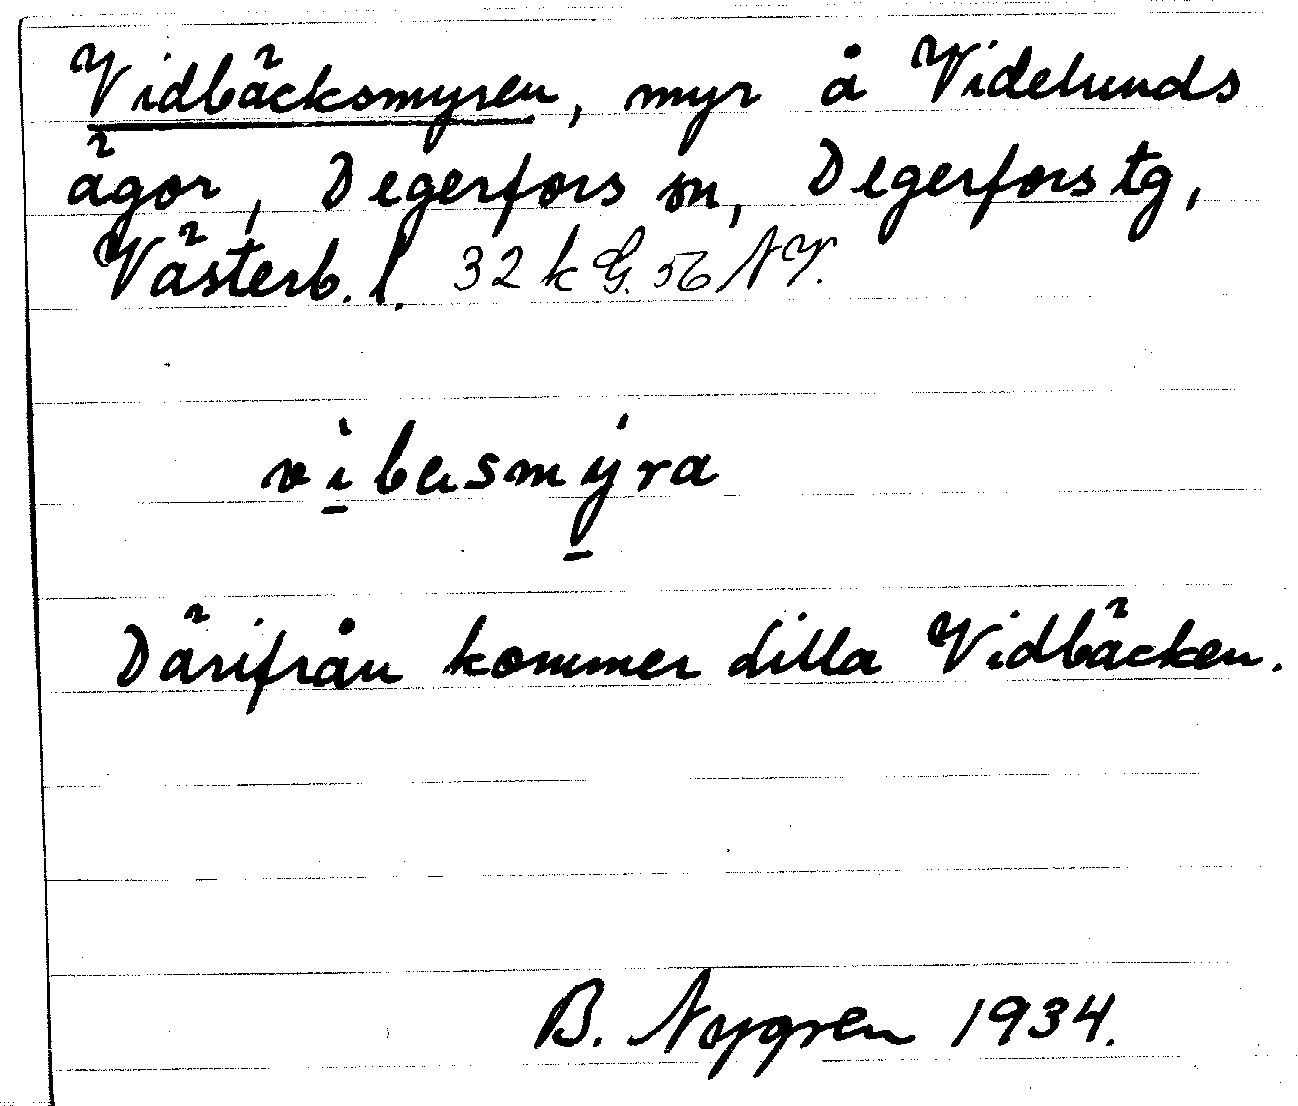 Vidbäcksmyren, myr å Videlunds
ägor, Degerfors sn, Degerfors tg,
Västerb. l. 32 k G. 56 NY.
vi̱basmy̱ra
Därifrån kommer Lilla Vidbäcken.
B. Nygren 1934.